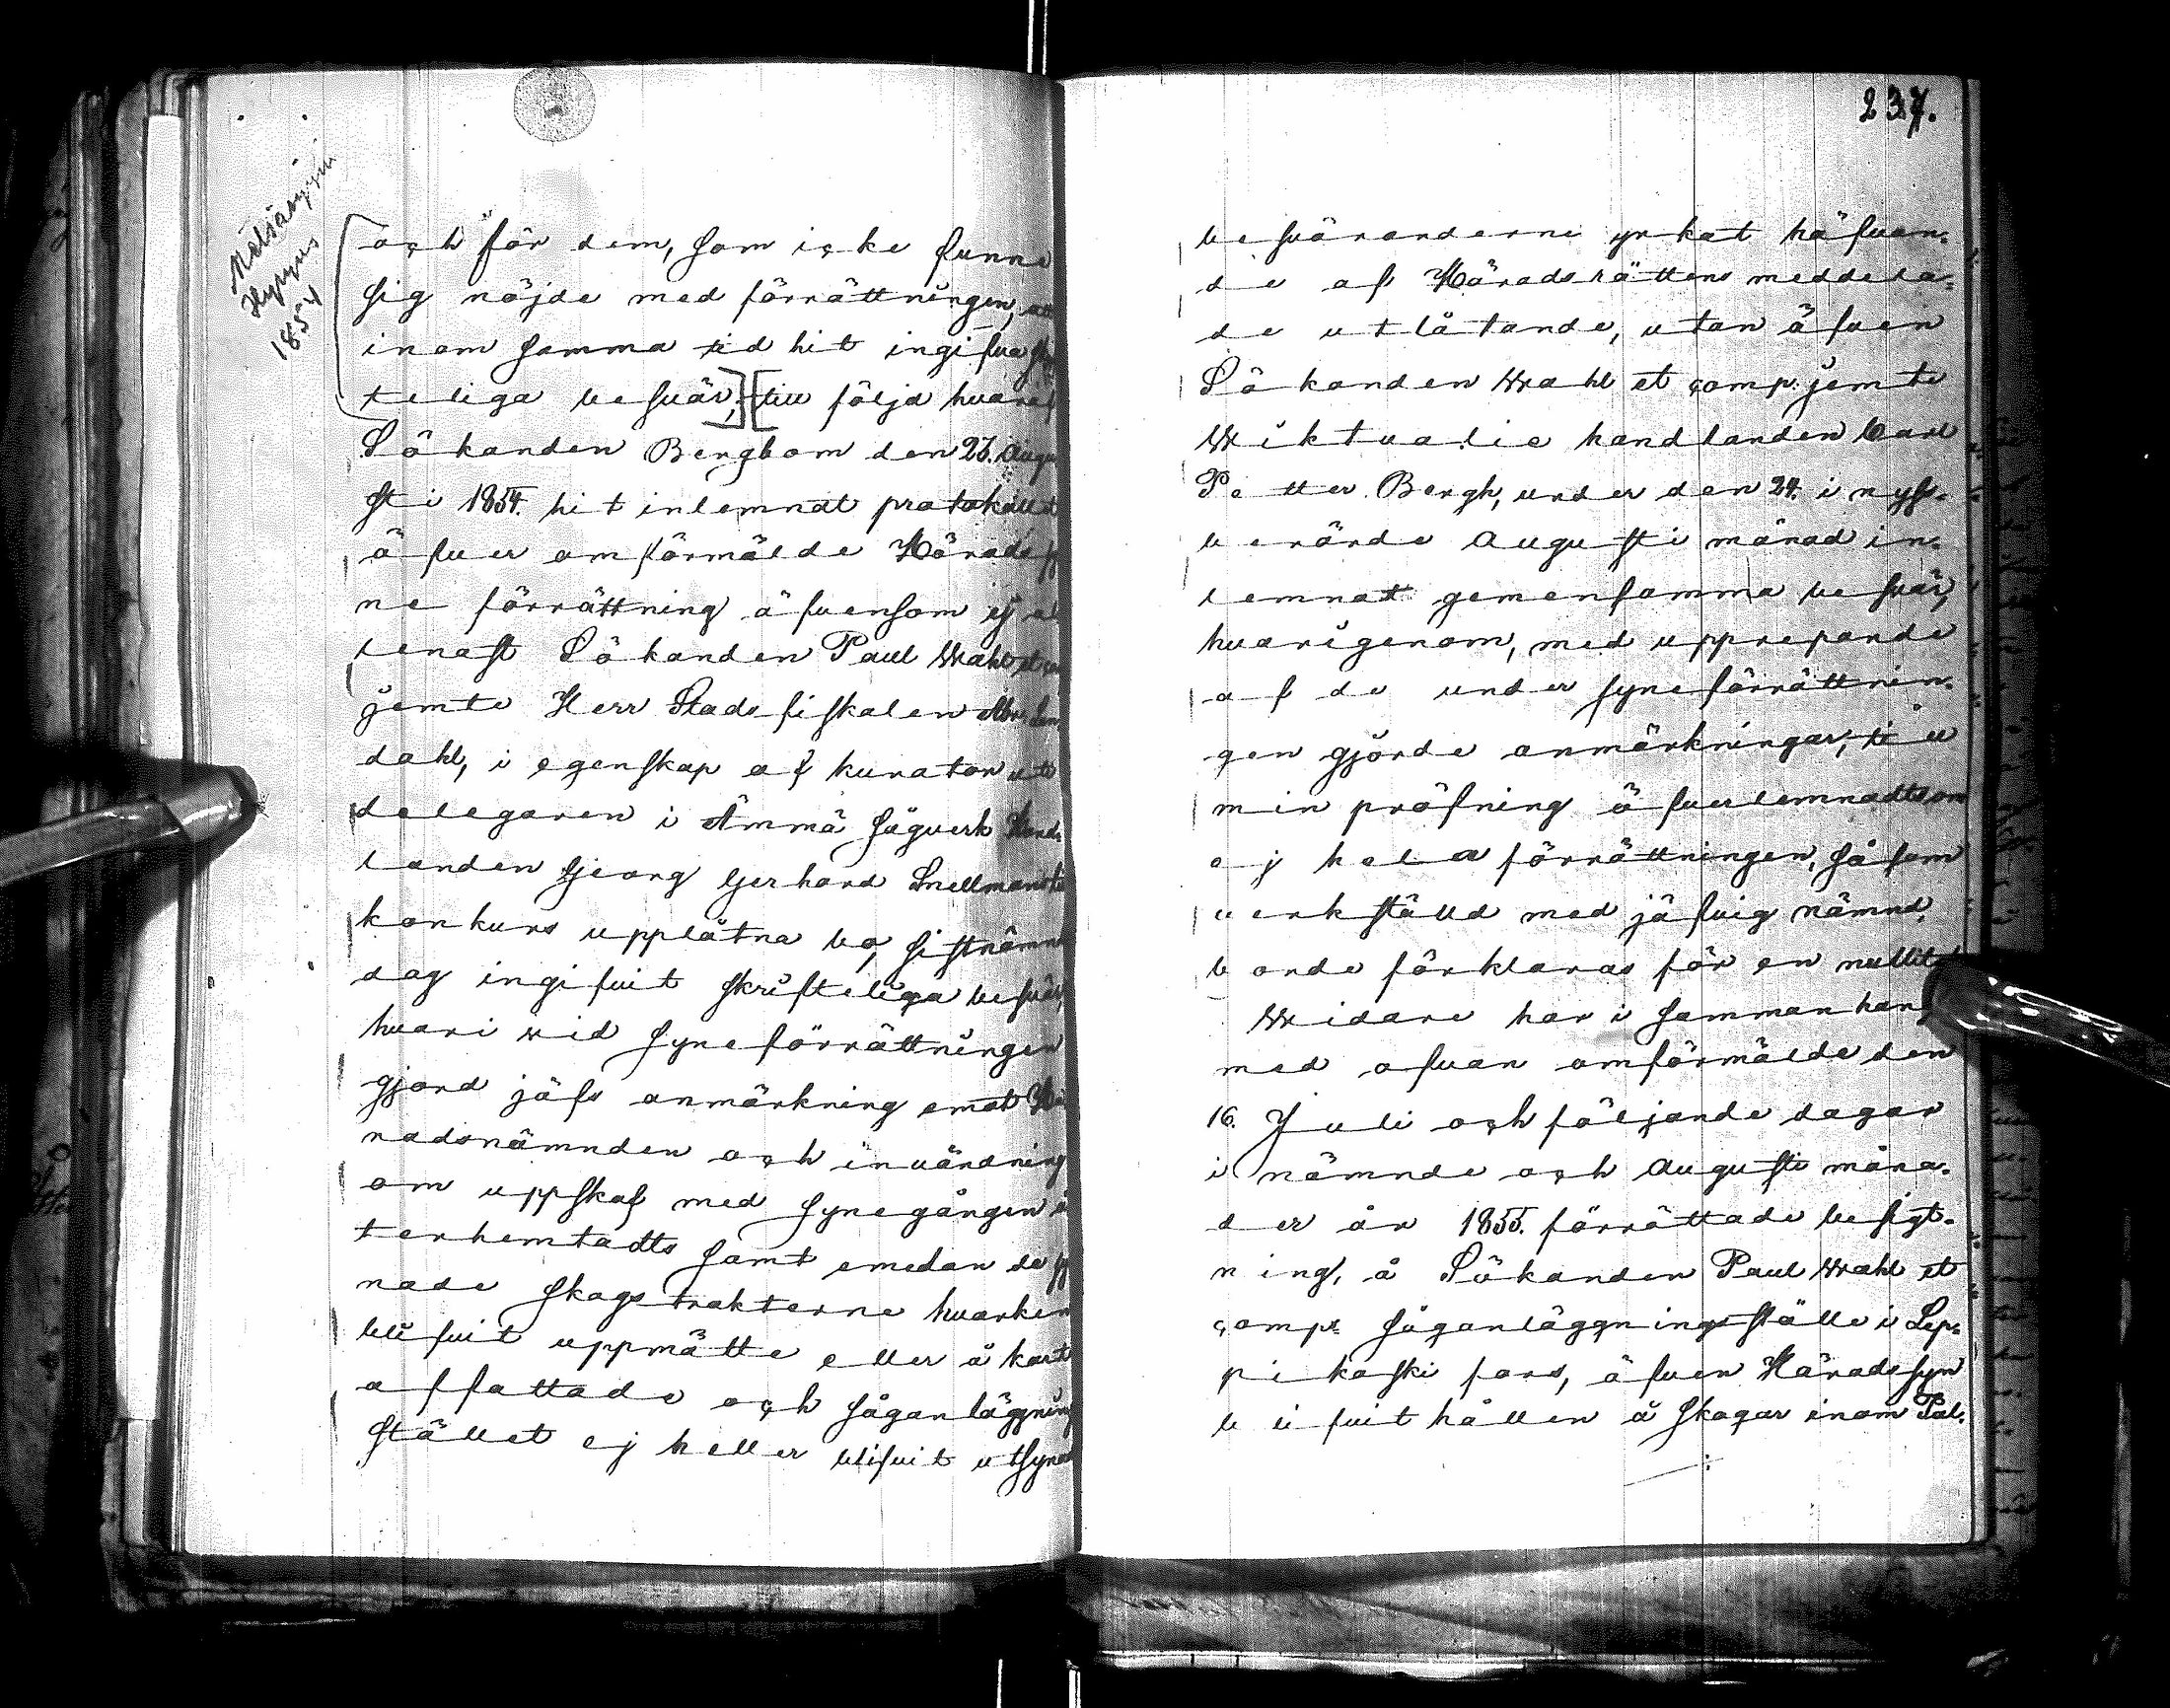 237.
1854
och för dem, som icke funne
sig nöjde med förrättningen, att
inom samma tid hit ingifva
teliga besvär; till följd hvaraf
Sökanden Bergbom den 23. Augu
sti 1854. hit inlemnat protokollet
öfver omförmälde Härads sy
ne förrättning äfvensom ej al
lenast Sökanden Paul Wahl et
jemte Herr Stadsfiskalen
dahl, i egenskap af kurator
delegaren i Ämmä sågverk Hand-
landen Georg Gerhard Snellmans
konkurs upplåtna bo, sistnämn
dag ingifvit skrifteliga besvär,
hvari wid syneförrättningen
gjord jäfs anmärkning emot Hä
radsnämnden och invändning
om uppskof med synegången å
terhemtadts samt emedan de sy
nade skogstrakterne hvarken
blifvit uppmätte eller å karta
affattade och såganläggning
stället ej heller blifvit utsynat
besväranderne yrkat häfvan-
de af Häradsrättens meddela-
de utlåtande, utan äfven
Sökanden Wahl et comp. jemte
Wiktualie handlanden Carl
Petter Bergh, under den 24. i nyss-
berörde Augusti månad in-
lemnat gemensamma besvär,
hvarigenom, med upprepande
af de under syneförrättnin-
gen gjorde anmärkningar, till
min pröfning öfverlemnadts om
ej hela förrättningen, såsom
verkställd med jäfvig nämnd,
borde förklaras för en nullitet
Widare har i sammanhang
med ofvan omförmälde den
16. Juli och följande dagar
i nämnde och Augusti måna-
der år 1855. förrättade besigt-
ning, å Sökanden Paul Wahl et
comp: såganläggningsställe i Lep-
pikoski fors, äfven Häradssyn
blifvit hållen å skogar inom Pal-